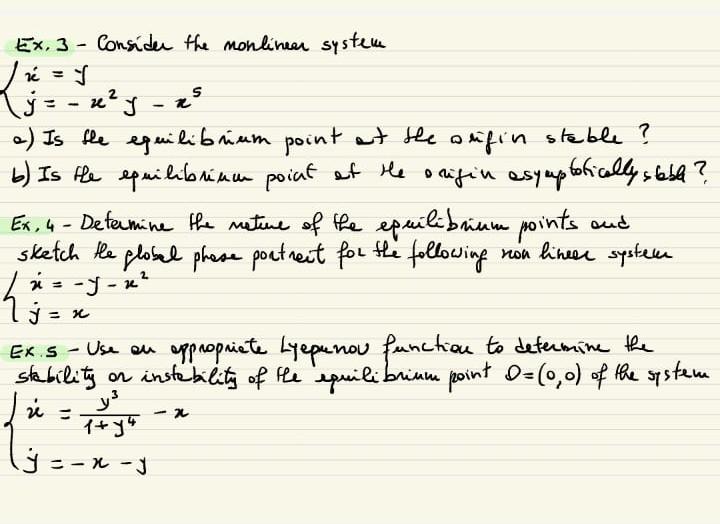 Ex. 3 - Consider the nonlinear system
ẋ = y
ẏ = - x² y - x⁵
a) Is the equilibrium point at the origin stable ?
b) Is the equilibrium point at the origin asymptotically stable ?
Ex. 4 - Determine the nature of the equilibrium points and
sketch the global phase portrait for the following non linear system
ẋ = - y - x²
ẏ = x
Ex. 5 - Use an appropriate Lyapunov function to determine the
stability or instability of the equilibrium point O=(0,0) of the system
ẋ = y³/(1+y⁴) - x
ẏ = - x - y